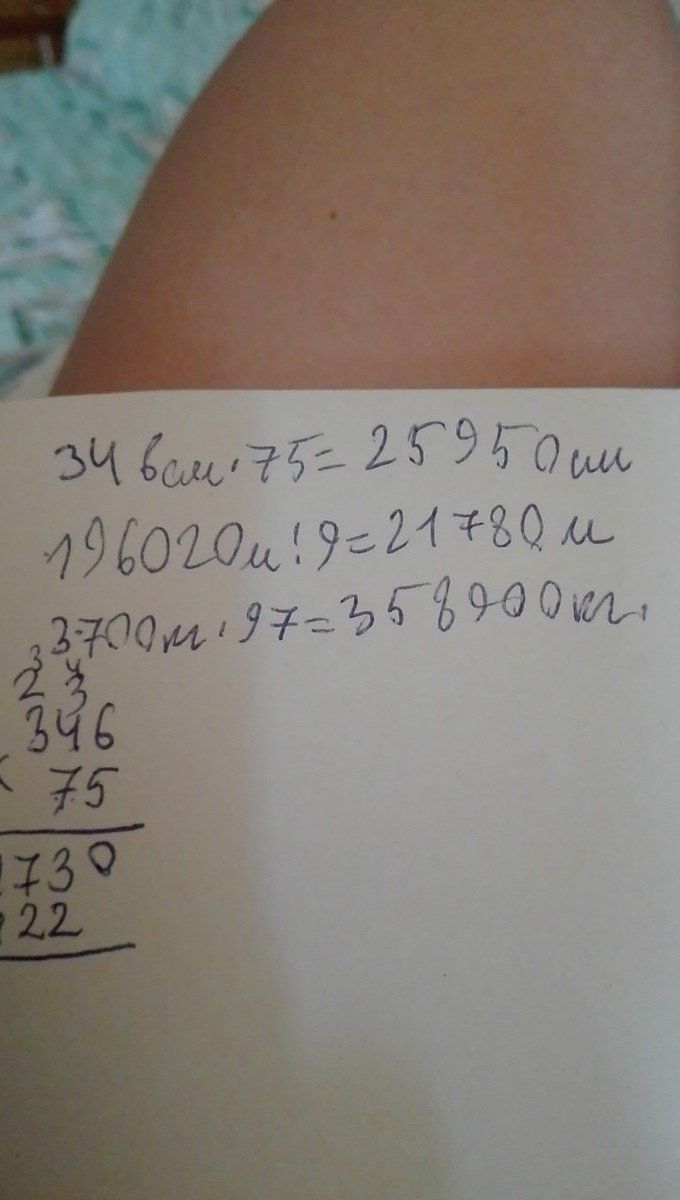 346см·75=25950см
196020м:9=21780м
3700кг·97=358900кг.
3
2 3
346
× 75
1730
22